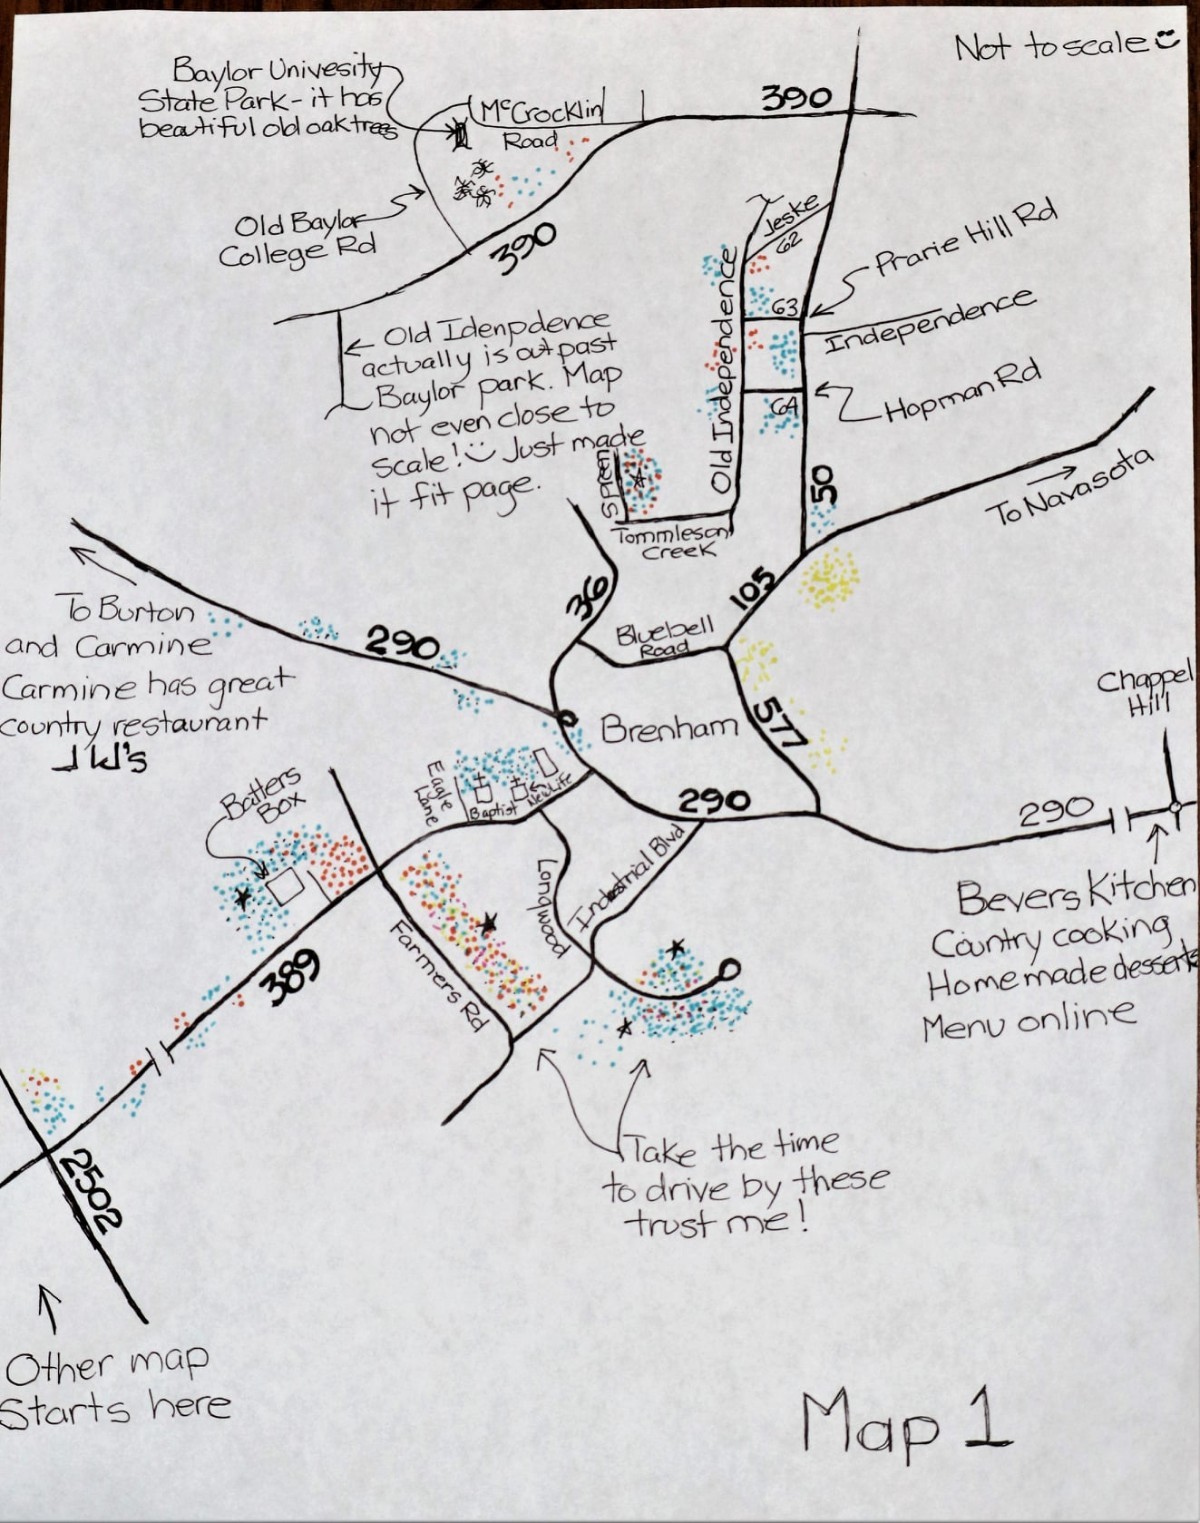 Not to scale
Baylor Univesity
State Park - it has
beautiful old oak trees
McCrocklin
Road
390
Old Baylor
College Rd
390
Jeske
62
Prarie Hill Rd
63
Independence
Old Independence
Hopman Rd
64
50
To Navasota
Old Idenpdence
actually is out past
Baylor park. Map
not even close to
scale! Just made
it fit page.
Spreen
Tommleson
Creek
36
105
Bluebell
Road
To Burton
and Carmine
Carmine has great
country restaurant
JW's
290
Brenham
577
Chappel
Hill
Eagle
Lane
Baptist
New Life
290
290
Batters
Box
Longwood
Industrial Blvd
Farmers Rd
389
Bevers Kitchen
Country cooking
Homemade desserts
Menu online
Take the time
to drive by these
trust me!
2502
Other map
Starts here
Map 1